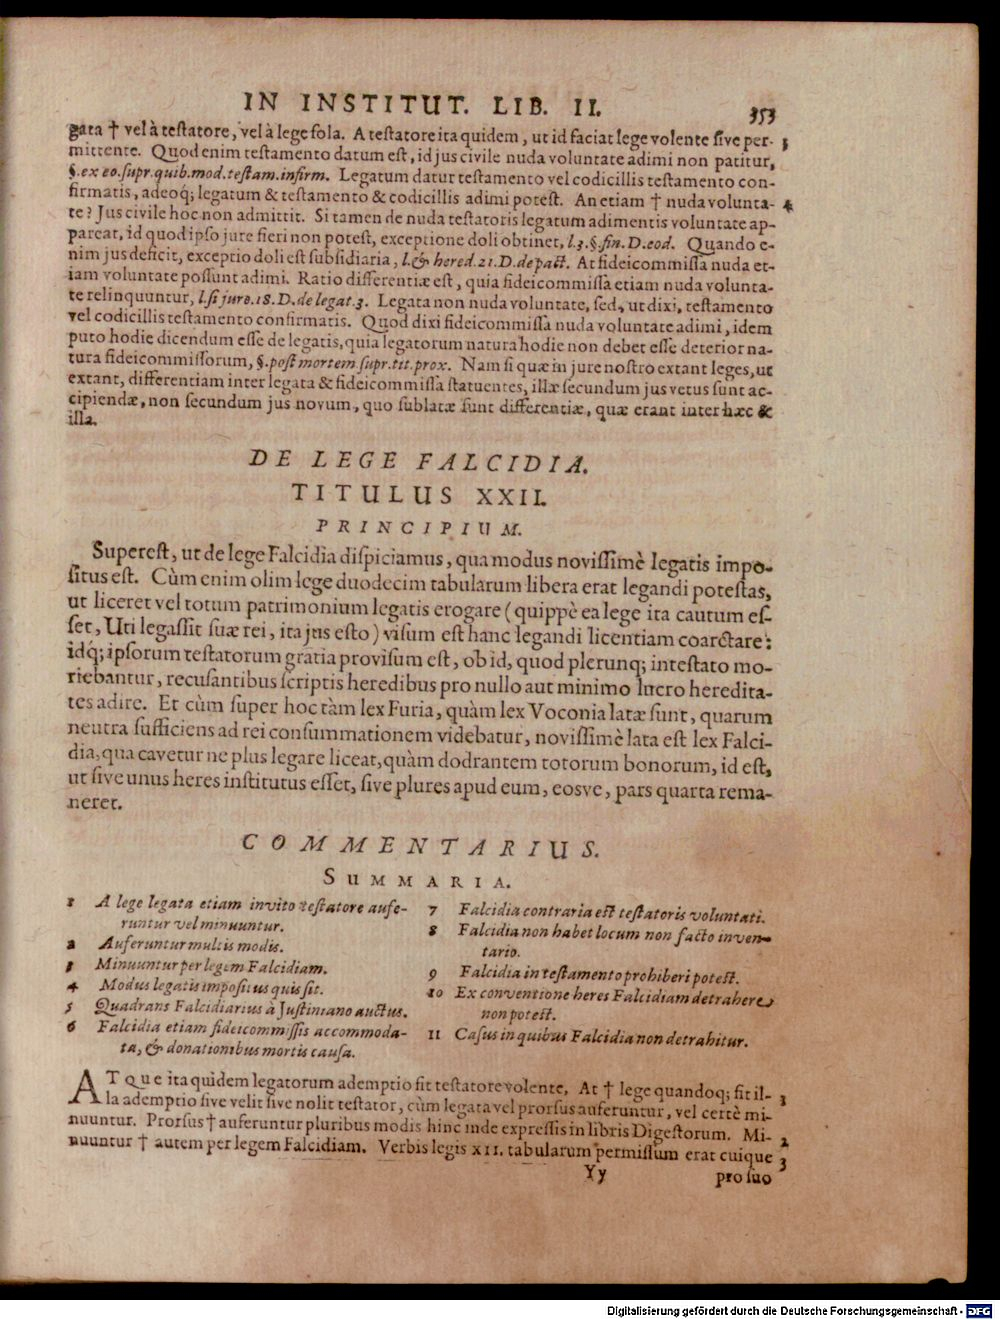 IN INSTITUT. LIB. II. 353
gata † vel à testatore, vel à lege sola. A testatore ita quidem, ut id faciat lege volente sive per- 3
mittente. Quod enim testamento datum est, id jus civile nuda voluntate adimi non patitur,
§. ex eo. supr. quib. mod. testam. infirm. Legatum datur testamento vel codicillis testamento con-
firmatis, adeoq; legatum & testamento & codicillis adimi potest. An etiam † nuda volunta- 4
te? Jus civile hoc non admittit. Si tamen de nuda testatoris legatum adimentis voluntate ap-
pareat, id quod ipso jure fieri non potest, exceptione doli obtinet, l. 3. §. fin. D. eod. Quando e-
nim jus deficit, exceptio doli est subsidiaria, l. & hered. 21. D. de pact. At fideicommissa nuda et-
iam voluntate possunt adimi. Ratio differentiæ est, quia fideicommissa etiam nuda volunta-
te relinquuntur, l. si jure. 18. D. de legat. 3. Legata non nuda voluntate, sed, ut dixi, testamento
vel codicillis testamento confirmatis. Quod dixi fideicommissa nuda voluntate adimi, idem
puto hodie dicendum esse de legatis, quia legatorum natura hodie non debet esse deterior na-
tura fideicommissorum, §. post mortem. supr. tit. prox. Nam si quæ in jure nostro extant leges, ut
extant, differentiam inter legata & fideicommissa statuentes, illæ secundum jus vetus sunt ac-
cipiendæ, non secundum jus novum, quo sublatæ sunt differentiæ, quæ erant inter hæc &
illa.
DE LEGE FALCIDIA.
TITULUS XXII.
PRINCIPIUM.
Superest, ut de lege Falcidia dispiciamus, qua modus novissimè legatis impo-
situs est. Cùm enim olim lege duodecim tabularum libera erat legandi potestas,
ut liceret vel totum patrimonium legatis erogare (quippè ea lege ita cautum es-
set, Uti legassit suæ rei, ita jus esto) visum est hanc legandi licentiam coarctare:
idq; ipsorum testatorum gratia provisum est, ob id, quod plerunq; intestato mo-
riebantur, recusantibus scriptis heredibus pro nullo aut minimo lucro heredita-
tes adire. Et cùm super hoc tàm lex Furia, quàm lex Voconia latæ sunt, quarum
neutra sufficiens ad rei consummationem videbatur, novissimè lata est lex Falci-
dia, qua cavetur ne plus legare liceat, quàm dodrantem totorum bonorum, id est,
ut sive unus heres institutus esset, sive plures apud eum, eosve, pars quarta rema-
neret.
COMMENTARIUS.
SUMMARIA.
1 A lege legata etiam invito testatore aufe-
runtur vel minuuntur.
2 Auferuntur multis modis.
3 Minuuntur per legem Falcidiam.
4 Modus legatis impositus quis sit.
5 Quadrans Falcidiarius à Justiniano auctus.
6 Falcidia etiam fideicommissis accommoda-
ta, & donationibus mortis causa.
7 Falcidia contraria est testatoris voluntati.
8 Falcidia non habet locum non facto inven-
tario.
9 Falcidia in testamento prohiberi potest.
10 Ex conventione heres Falcidiam detrahere
non potest.
11 Casus in quibus Falcidia non detrahitur.
ATque ita quidem legatorum ademptio fit testatore volente. At † lege quandoq; fit il- 1
la ademptio sive velit sive nolit testator, cùm legata vel prorsus auferuntur, vel certè mi-
nuuntur. Prorsus † auferuntur pluribus modis hinc inde expressis in libris Digestorum. Mi- 2
nuuntur † autem per legem Falcidiam. Verbis legis XII. tabularum permissum erat cuique 3
Yy pro suo
Digitalisierung gefördert durch die Deutsche Forschungsgemeinschaft - DFG